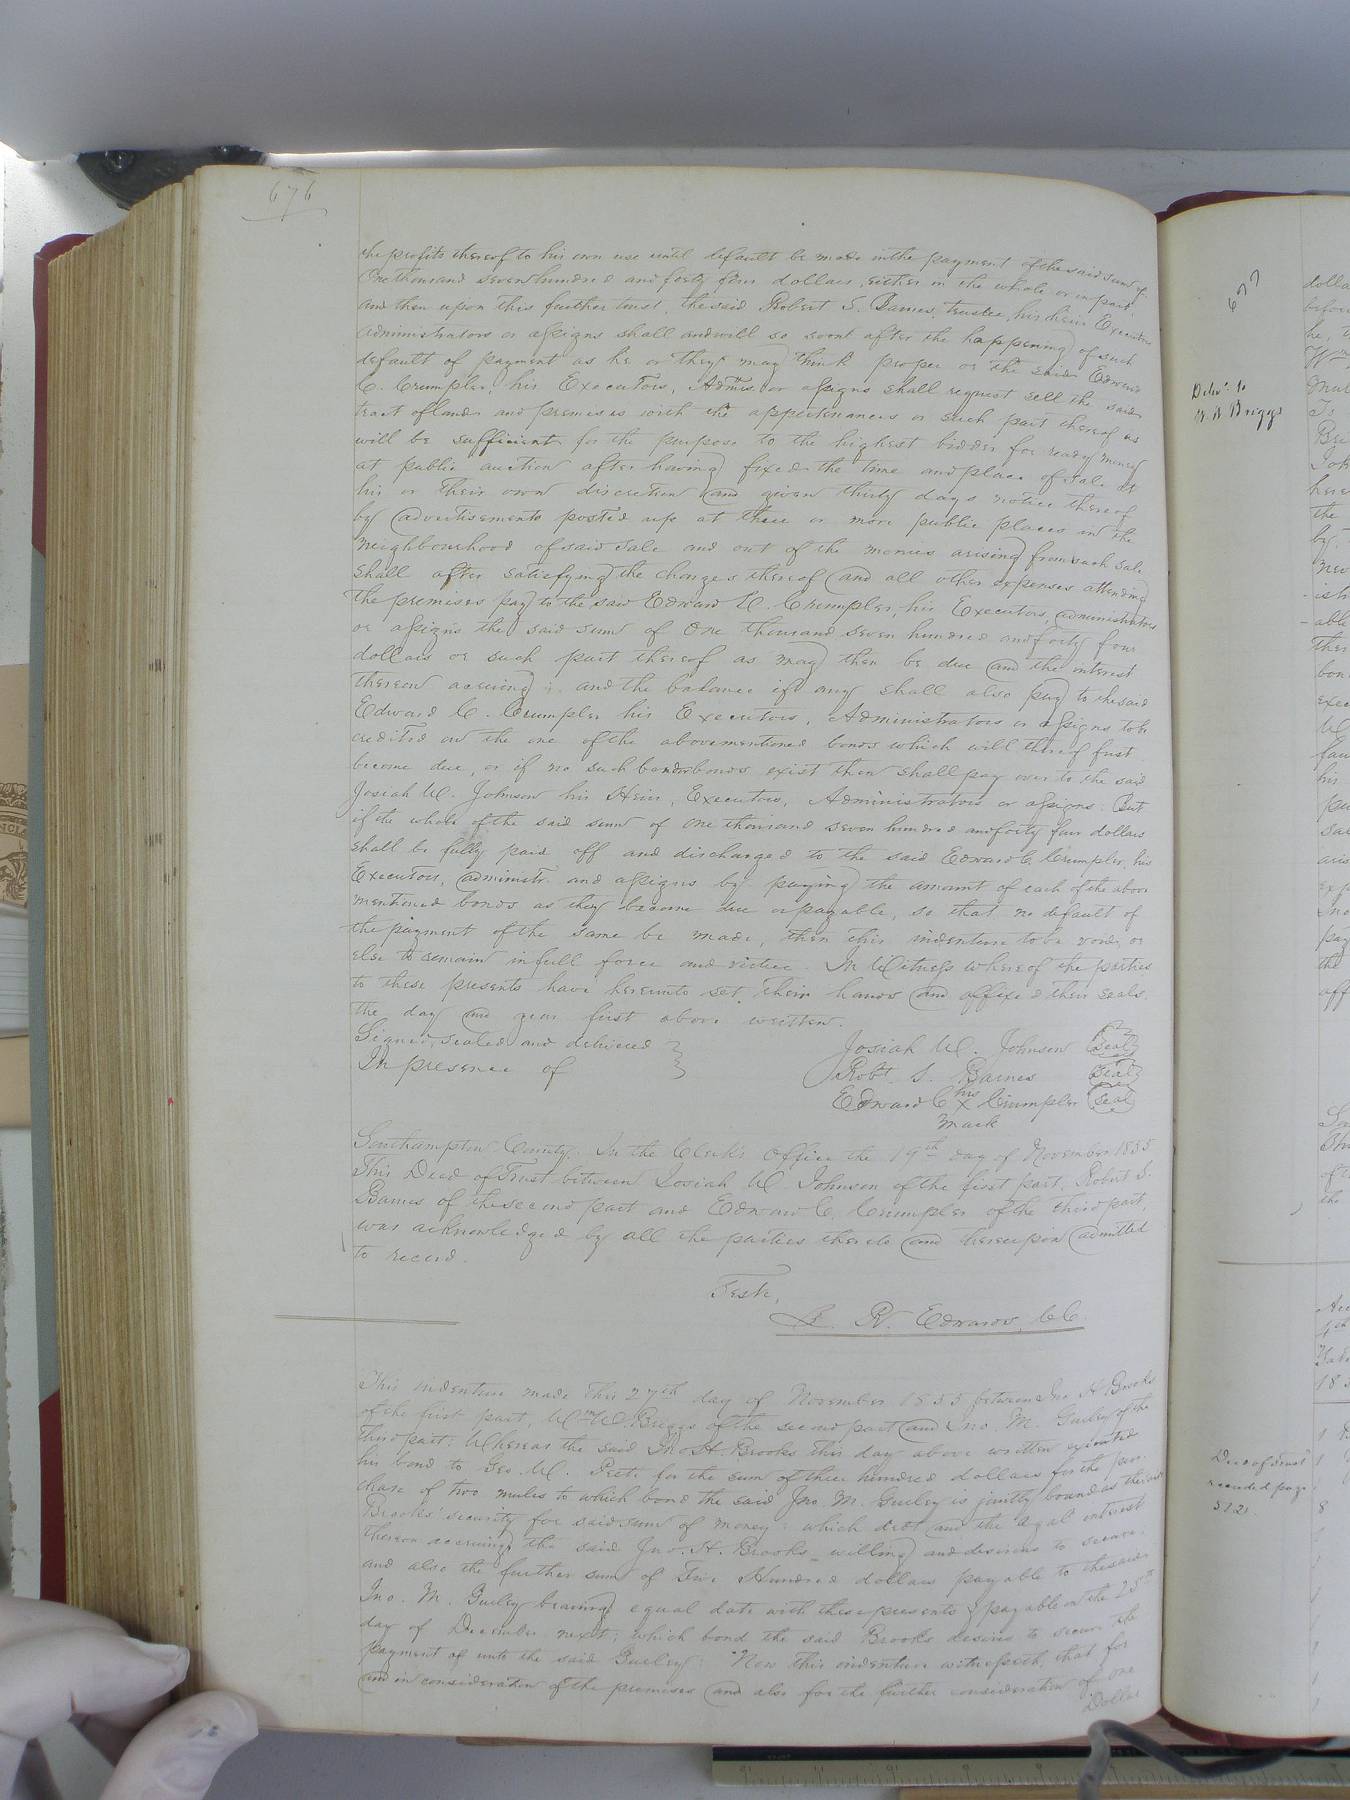 676
the profits thereof to his own use until default be made in the payment of the said sum of
One thousand seven hundred and forty four dollars, either in the whole or in part
and then upon this further trust, the said Robert S. Barnes, trustee, his heirs Executors
administrators or assigns shall and will so soon after the happening of such
default of payment as he or they may think proper or the said Edward
C. Crumpler, his Executors, Admrs. or assigns shall request sell the said
tract of land and premises with the appertenances or such part thereof as
will be sufficient for the purpose to the highest bidder for ready money
at public auction after having fixed the time and place of sale at
his or their own discretion and given thirty days notice thereof
by advertisements posted up at three or more public places in the
neighbourhood of said sale and out of the monies arising from such sale
shall after satisfying the charges thereof and all other expenses attending
the premises pay to the said Edward C. Crumpler, his Executors, administrators
or assigns the said sum of One thousand seven hundred and forty four
dollars or such part thereof as may then be due and the interest
thereon accruing; and the balance if any shall also pay to the said
Edward C. Crumpler his Executors, Administrators or assigns to be
credited on the one of the abovementioned bonds which will thereof first
become due, or if no such bonds exist then shall pay over to the said
Josiah W. Johnson his Heirs, Executors, Administrators or assigns. But
if the whole of the said sum of one thousand seven hundred and forty four dollars
shall be fully paid off and discharged to the said Edward C. Crumpler, his
Executors, administr. and assigns by paying the amount of each of the above
mentioned bonds as they become due or payable, so that no default of
the payment of the same be made, then this indenture to be void, or
else to remain in full force and virtue. In Witness whereof the parties
to these presents have hereunto set their hands and affixed their seals
the day and year first above written.
Signed, sealed and delivered
In presence of
Josiah W. Johnson Seal
Robt. S. Barnes Seal
Edward C his x Crumpler Seal
mark
Southampton County. In the Clerk's Office the 19th day of November 1855
This Deed of Trust between Josiah W. Johnson of the first part, Robert S.
Barnes of the second part and Edward C. Crumpler of the third part,
was acknowledged by all the parties thereto and thereupon admitted
to record.
Teste,
L. R. Edwards, C.C.
This indenture made this 27th day of November 1855 between Jno H Brooks
of the first part, Wm W Briggs of the second part and Jno. M. Gurley of the
third part: Whereas the said Jno H. Brooks this day above written executed
his bond to Geo. W. Peete for the sum of three hundred dollars for the pur-
chase of two mules to which bond the said Jno. M. Gurley is jointly bound as the said
Brooks' security for said sum of money: which debt and the legal interest
thereon accruing the said Jno. H. Brooks willing and desirous to secure.
and also the further sum of Five Hundred dollars payable to the said
Jno. M. Gurley bearing equal date with these presents & payable on the 25th
day of December next; which bond the said Brooks desires to secure the
payment of unto the said Gurley: Now this indenture witnesseth, that for
and in consideration of the premises and also for the further consideration of one
Dollar
677
Delivd. to
W. W Briggs
Deed of trust
recorded page
512.